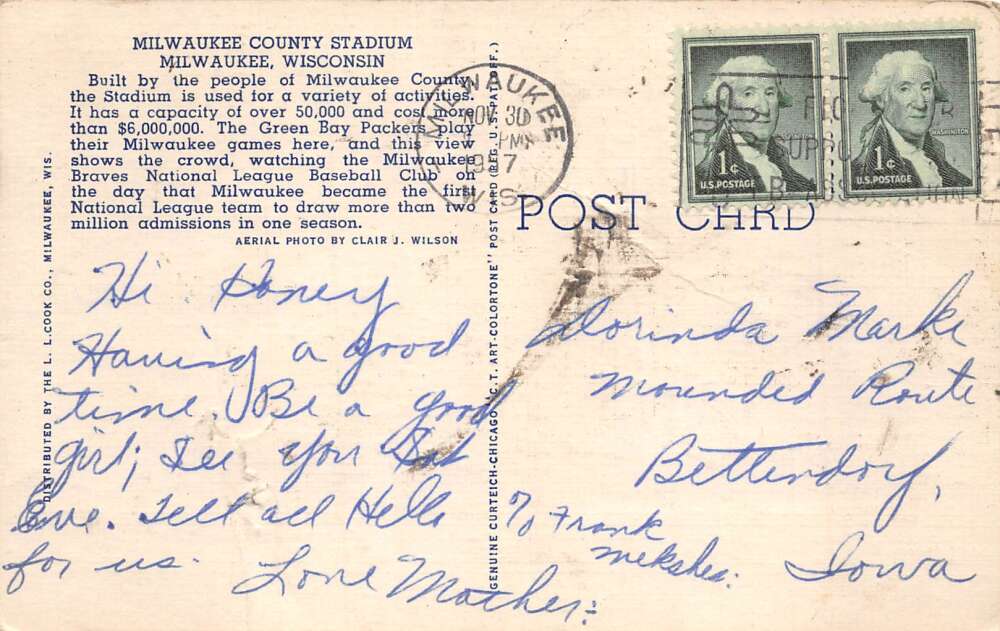 MILWAUKEE COUNTY STADIUM
MILWAUKEE, WISCONSIN
Built by the people of Milwaukee County,
the Stadium is used for a variety of activities.
It has a capacity of over 50,000 and cost more
than $6,000,000. The Green Bay Packers play
their Milwaukee games here, and this view
shows the crowd, watching the Milwaukee
Braves National League Baseball Club on
the day that Milwaukee became the first
National League team to draw more than two
million admissions in one season.
AERIAL PHOTO BY CLAIR J. WILSON
DISTRIBUTED BY THE L. L. COOK CO., MILWAUKEE, WIS.
GENUINE CURTEICH-CHICAGO "C. T. ART-COLORTONE" POST CARD (REG. U. S. PAT. OFF.)
MILWAUKEE
NOV 30
PM
1957
WIS.
1¢
U.S. POSTAGE
1¢
WASHINGTON
U.S. POSTAGE
POST CARD
Hi Honey
Having a good
time. Be a good
girl; See you Sat
Eve. Tell all Hello
for us.
Love Mother:
Dorinda Marke
Mounded Route
Bettendorf,
c/o Frank
Iowa